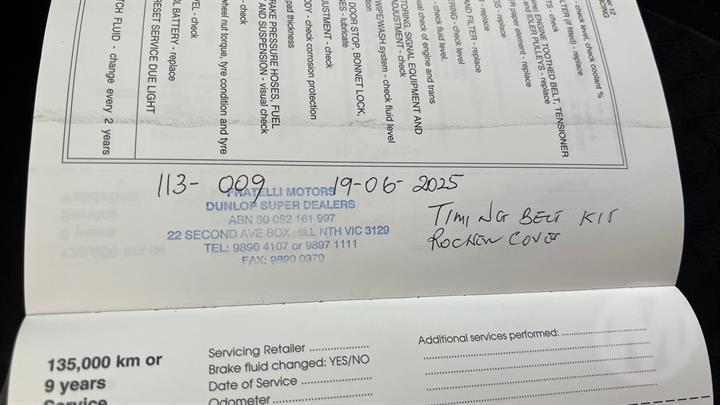 - check level, check coolant %
LTER (if fitted) - replace
TS - check
ENGINE TOOTHED BELT, TENSIONER
and IDLER PULLEYS - replace
R paper element - replace
S - replace
- replace
AND FILTER - replace
RING - check level
- check fluid level.
ual check of engine and trans
TORING, SIGNAL EQUIPMENT AND
ADJUSTMENT - check
WIPE/WASH system - check fluid level
DOOR STOP, BONNET LOCK,
ES - lubricate
JUSTMENT - check
ODY - check corrosion protection
pad thickness
RAKE PRESSURE HOSES, FUEL
AND SUSPENSION - visual check
- check
wheel nut torque, tyre condition and tyre
PEL - check
OL BATTERY - replace
RESET SERVICE DUE LIGHT
TCH FLUID - change every 2 years
113- 009 19-06-2025
FRATELLI MOTORS
DUNLOP SUPER DEALERS
ABN 80 082 161 997
22 SECOND AVE BOX HILL NTH VIC 3129
TEL: 9890 4107 or 9897 1111
FAX: 9890 0370
TIMING BELT KIT
ROCKEW COVER
135,000 km or
9 years
Service
Servicing Retailer
Brake fluid changed: YES/NO
Date of Service
Odometer
Additional services performed: